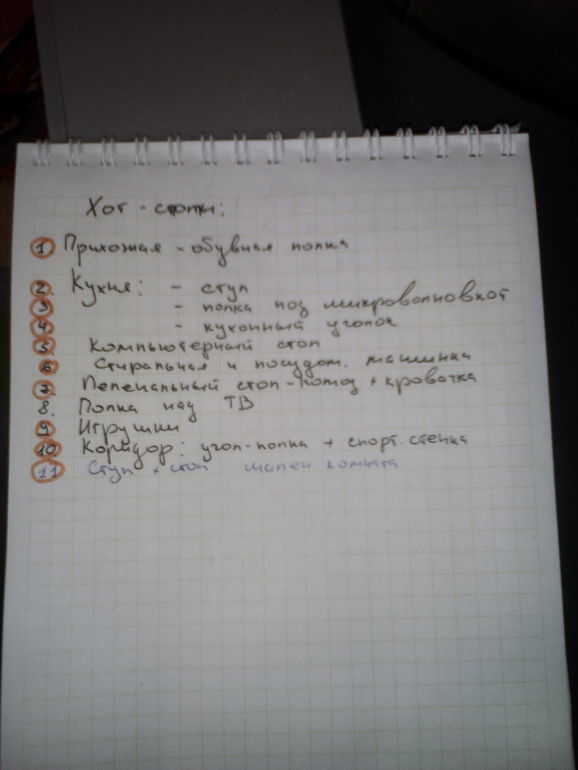 Хот - споты:
1 Прихожая - обувная полка
2. Кухня: - стул
3 - полка под микроволновкой
4 - кухонный уголок
5 Компьютерный стол
6 Стиральная и посудом. машинка
7. Пеленальный стол-комод + кроватка
8. Полка над ТВ
9 Игрушки
10 Коридор: угол-полка + спорт. стенка
11 Стул + стол мален. комната